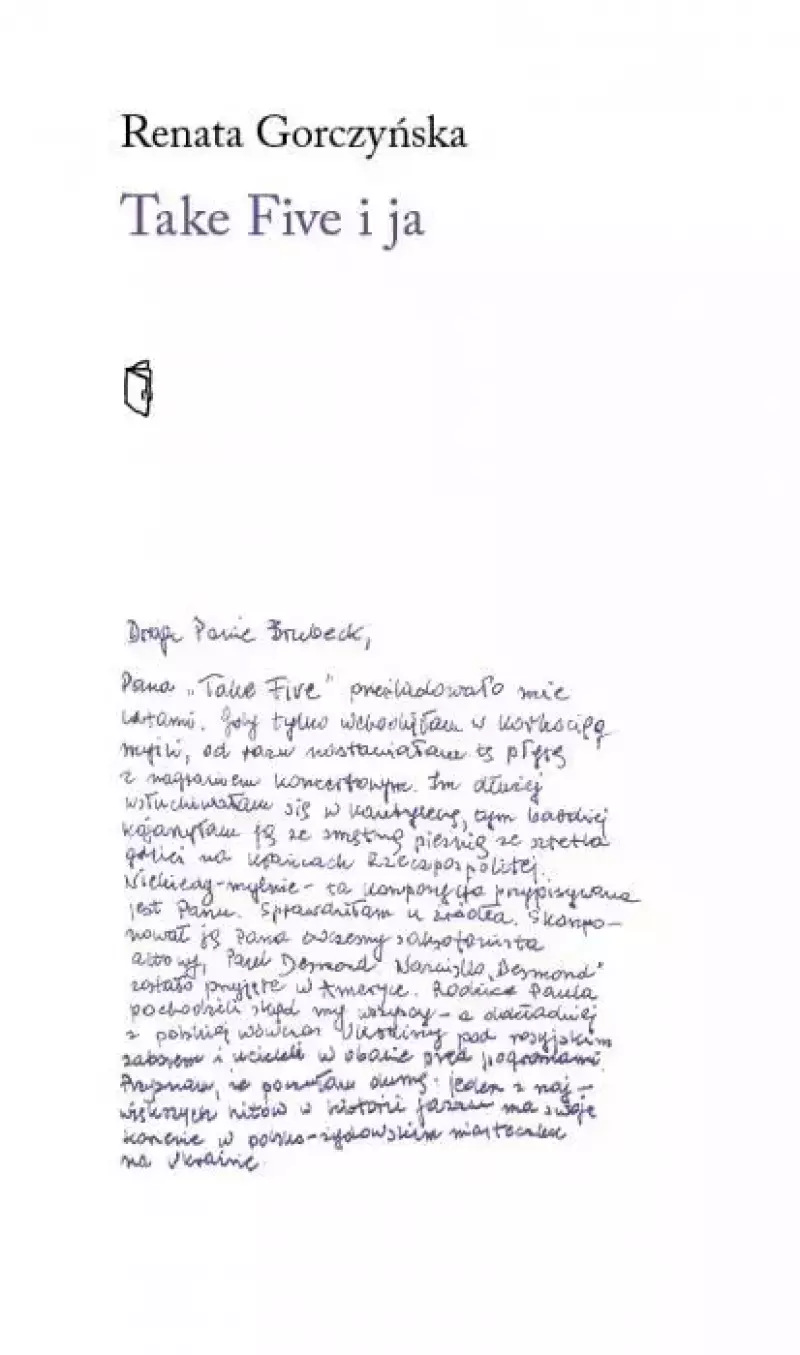 Renata Gorczyńska
Take Five i ja
Drogi Panie Brubeck,
Pana „Take Five” prześladowało mnie
latami. Gdy tylko wchodziłam w korkociąg
myśli, od razu nastawiałam tę płytę
z nagraniem koncertowym. Im dłużej
wsłuchiwałam się w kantylenę, tym bardziej
kojarzyłam ją ze smętną pieśnią ze sztetla
gdzieś na krańcach Rzeczpospolitej.
Niekiedy – mylnie – ta kompozycja przypisywana
jest Panu. Sprawdziłam u źródła. Skompo-
nował ją Pana saksofonista
altowy, Paul Desmond. Nazwisko „Desmond”
zostało przyjęte w Ameryce. Rodzice Paula
pochodzili skąd my wszyscy – a dokładniej
z polskiej wówczas Ukrainy pod rosyjskim
zaborem i uciekli w obawie przed pogromami.
Przyznam, że poczułam dumę: jeden z naj-
większych hitów w historii jazzu ma swoje
korzenie w polsko-żydowskim miasteczku
na Ukrainie.